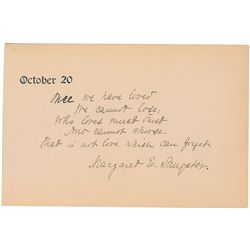 October 20
Once we have loved
We cannot lose,
Who loves must trust
Nor cannot choose.
That is not love which can forget.
Margaret E. Sangster.